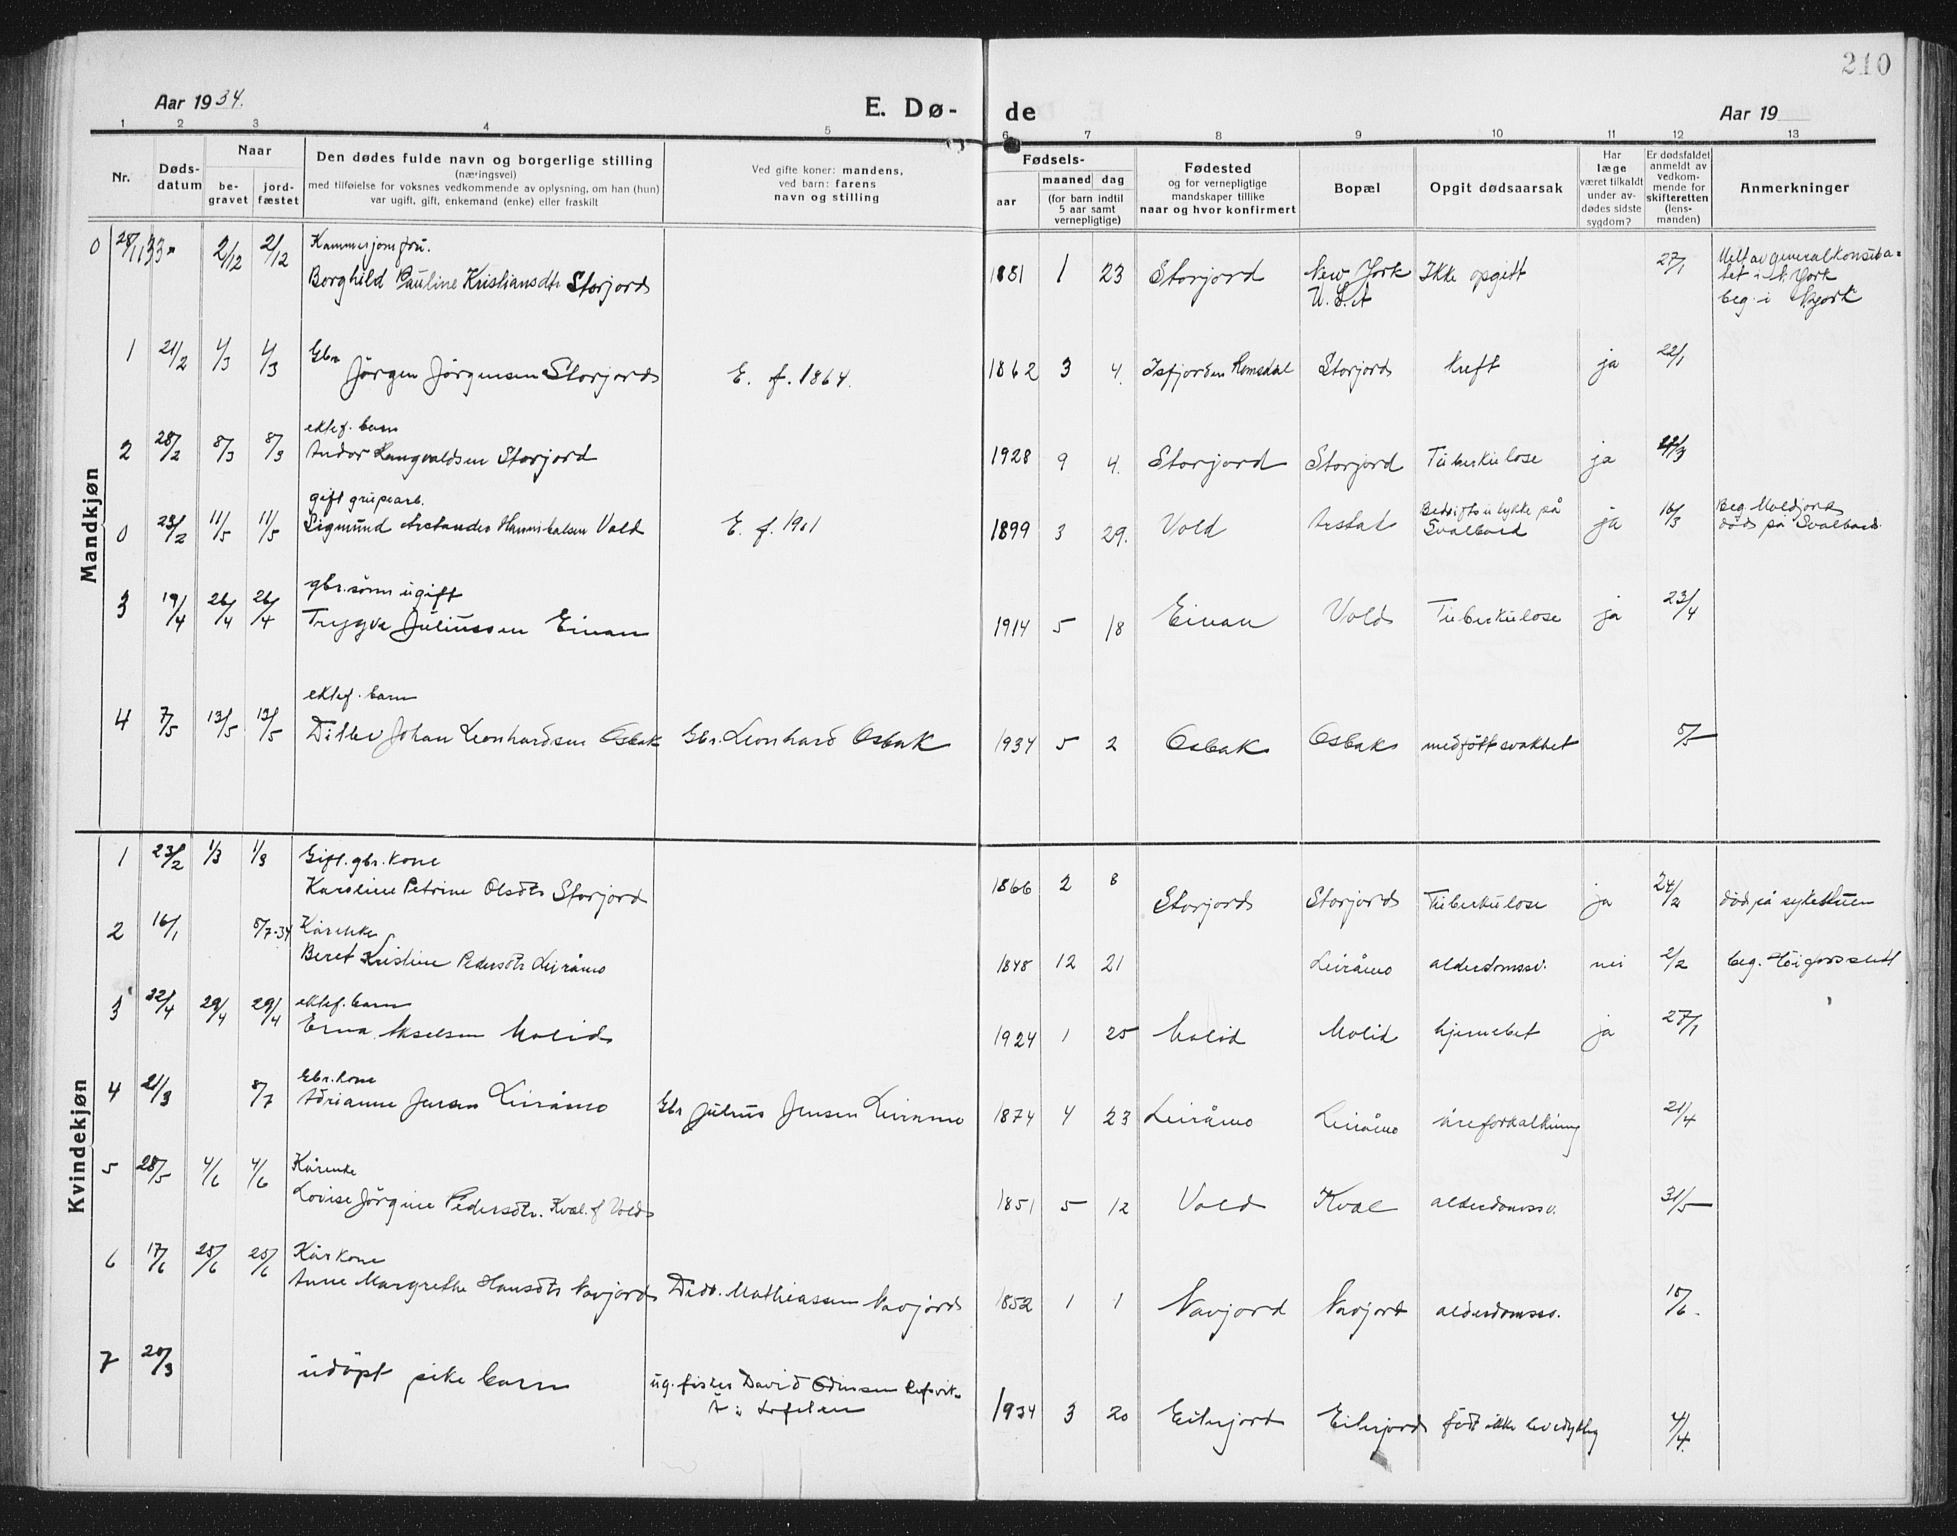 210
Aar 1934.
E. Dø-
de
Aar 19
1 2 3 4 5 6 7 8 9 10 11 12 13
Nr.
Døds-
datum
Naar
be-
gravet
jord-
fæstet
Den dødes fulde navn og borgerlige stilling
(næringsvei)
med tilføielse for voksnes vedkommende av oplysning, om han (hun)
var ugift, gift, enkemand (enke) eller fraskilt
Ved gifte koner: mandens,
ved barn: farens
navn og stilling
Fødsels-
aar
maaned dag
(for barn indtil
5 aar samt
vernepligtige)
Fødested
og for vernepligtige
mandskaper tillike
naar og hvor konfirmert
Bopæl
Opgit dødsaarsak
Har
læge
været tilkaldt
under av-
dødes sidste
sygdom?
Er dødsfaldet
anmeldt av
vedkom-
mende for
skifteretten
(lens-
manden)
Anmerkninger
Mandkjøn
0 28/11 33 2/12 2/12 Kammerjomfru.
Borghild Pauline Kristiansdtr Storjord
1881 1 23 Storjord New York Ikke opgitt 27/1
U.S.A
Melt av generalkonsula-
tet i N. York
beg. i N.york
1 21/2 4/3 4/3 Gbr
Jørgen Jørgensen Storjord E. f. 1864. 1862 3 4. Isfjorden Romsdal Storjord kreft ja 22/1
2 28/2 8/3 8/3 ektef. barn
Andor Rangvaldsen Storjord 1928 9 4. Storjord Storjord Tuberkulose ja
0 23/2 11/5 11/5 gift grupearb.
Sigmund Hannibalsen Vold E. f. 1901 1899 3 29. Vold Arstad Bedriftsulykke på
Svalbard ja 16/3 Beg. Moldjord
død på Svalbard.
3 19/4 26/4 26/4 gbr.sønn ugift
Trygve Juliussen Einan 1914 5 18 Einan Vold Tuberkulose ja 23/4
4 7/5 13/5 13/5 ektef. barn
Ditlev Johan Leonhardsen Osbak Gbr. Leonhard Osbak 1934 5 2 Osbak Osbak medfött svakhet 8/5
Kvindekjøn
1 23/2 1/3 1/3 Gift. gbr. kone
Karoline Petrine Olsdtr Storjord 1866 2 8 Storjord Storjord Tuberkulose ja 24/2 död på sykestuen
2 16/1 8/7-34 Kårenke
Beret Kristine Pedersdtr Leiråmo 1848 12 21 Leiråmo alderdomssv. nei 2/2 beg.
3 22/4 29/4 29/4 ektef. barn
Erna Akselsen Molid 1924 1 25 Molid Molid hjernebet ja 27/1
4 21/3 8/7 Gbr. kone
Adrianne Jensen Leiråmo Gbr Julius Jensen Leiramo 1874 4 23 Leiråmo Leiråmo åreforkalkning 21/4
5 28/5 4/6 4/6 Kårenke
Lovise Jörgine Pedersdtr. Kval. f Vold 1851 5 12 Vold Kval alderdomssv. 31/5
6 17/6 25/6 25/6 Kårkone
Anne Margrethe Hansdtr Navjord Mathiassen Navjord 1852 1 1 Navjord Navjord alderdomssv. 18/6.
7 20/3 udöpt pike barn ug. fisker David Odinsen Refsvik
Å i Lofoten 1934 3 20 Eiterjord Eiterjord födt ikke levedyktig 4/4.